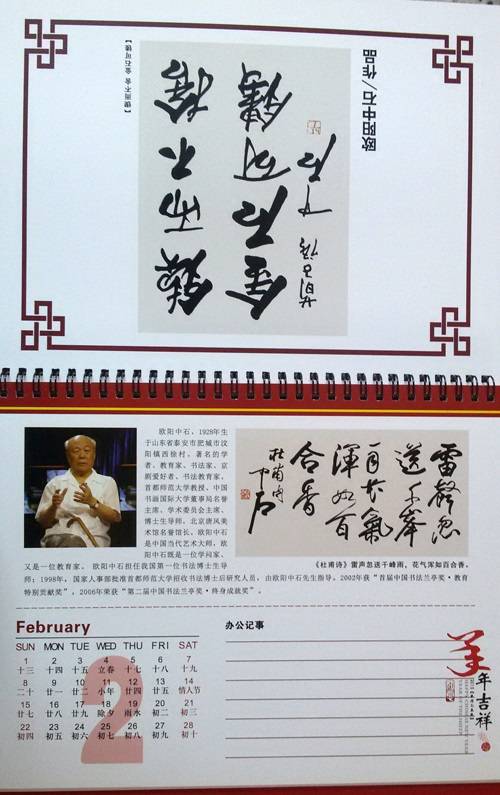 欧阳中石/作品
鍥而不捨
金石可鏤
荀子語 中石
【锲而不舍 金石可镂】
欧阳中石，1928年生
于山东省泰安市肥城市汶
阳镇西徐村，著名的学
者、教育家、书法家、京
剧爱好者、书法教育家、
首都师范大学教授、中国
书画国际大学董事局名誉
主席、学术委员会主席、
博士生导师、北京唐风美
术馆名誉馆长。欧阳中石
是中国当代艺术大师，欧
阳中石既是一位学问家、
又是一位教育家。欧阳中石担任我国第一位书法博士生导
师；1998年，国家人事部批准首都师范大学招收书法博士后研究人员，由欧阳中石先生指导。2002年获“首届中国书法兰亭奖·教育
特别贡献奖”，2006年荣获“第二届中国书法兰亭奖·终身成就奖”。
雷聲忽
送千峯
雨花氣
渾如百
合香
杜甫句
中石
《杜甫诗》雷声忽送千峰雨，花气浑如百合香。
February
SUN MON TUE WED THU FRI SAT
1 2 3 4 5 6 7
十三 十四 十五 立春 十七 十八 十九
8 9 10 11 12 13 14
二十 廿一 廿二 小年 廿四 廿五 情人节
15 16 17 18 19 20 21
廿七 廿八 廿九 除夕 雨水 初二 初三
22 23 24 25 26 27 28
初四 初五 初六 初七 初八 初九 初十
2
办公记事
羊
年吉祥